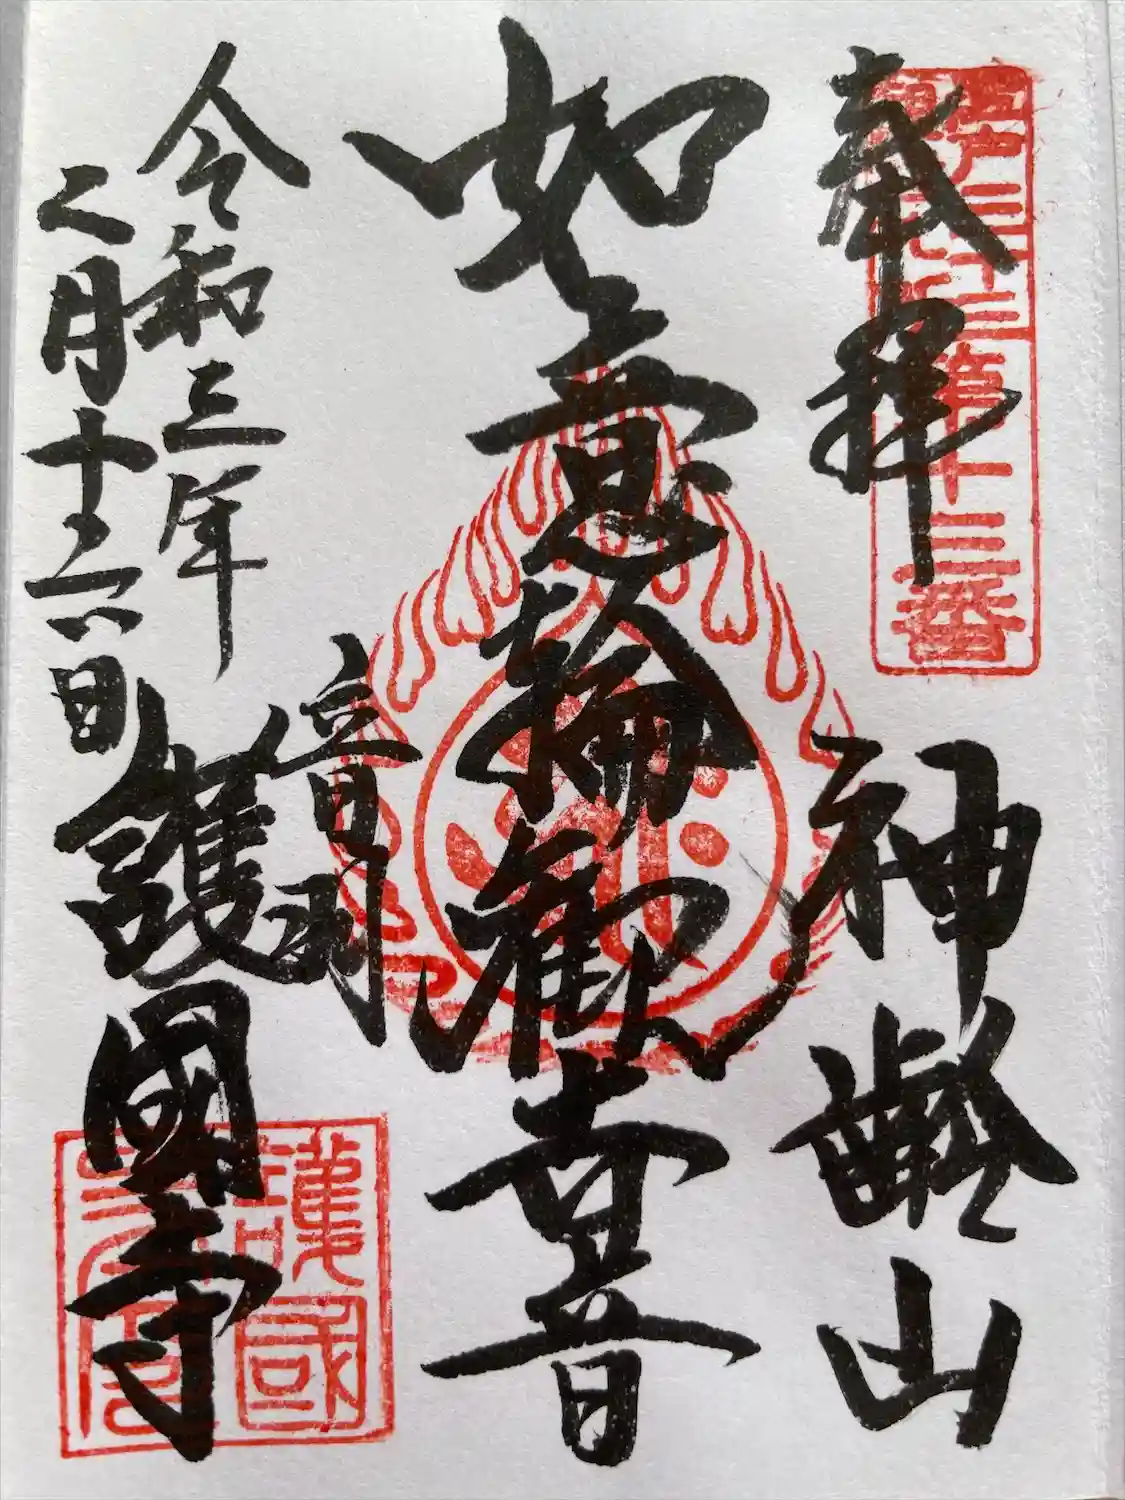 奉拝
江戸三十三第十三番
神齢山
如意輪観音
令和三年
二月十六日
音羽
護國寺